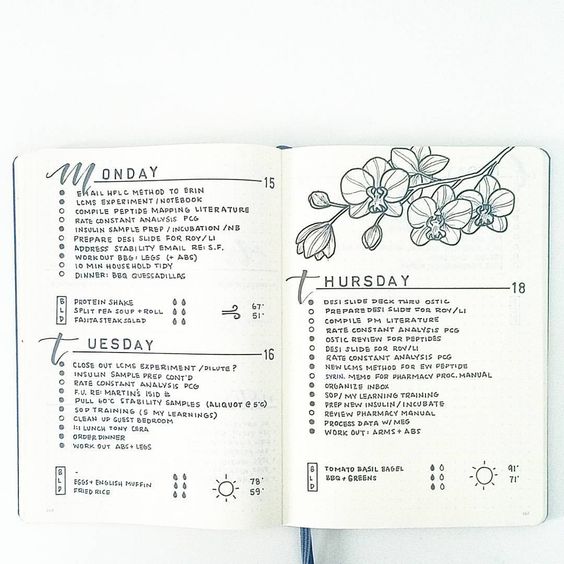 MONDAY 15
EMAIL HPLC METHOD TO ERIN
LCMS EXPERIMENT/NOTEBOOK
COMPILE PEPTIDE MAPPING LITERATURE
RATE CONSTANT ANALYSIS PCG
INSULIN SAMPLE PREP / INCUBATION / NB
PREPARE DESI SLIDE FOR ROY/LI
ADDRESS STABILITY EMAIL RE: S.F.
WORKOUT BBG: LEGS (+ ABS)
10 MIN HOUSEHOLD TIDY
DINNER: BBQ QUESADILLAS
B PROTEIN SHAKE
L SPLIT PEA SOUP + ROLL 67°
D FAJITA STEAK SALAD 51°
TUESDAY 16
CLOSE OUT LCMS EXPERIMENT /DILUTE?
INSULIN SAMPLE PREP CONT'D
RATE CONSTANT ANALYSIS PCG
F.U. RE: MARTIN'S
PULL 60°C STABILITY SAMPLES (ALIQUOT @ 5°C)
SOP TRAINING (5 MY LEARNINGS)
CLEAN UP GUEST BEDROOM
1:1 LUNCH TONY CERA
ORDER DINNER
WORK OUT ABS + LEGS
B -
L EGGS + ENGLISH MUFFIN 78°
D FRIED RICE 59°
THURSDAY 18
DESI SLIDE DECK THRU OSTIC
PREPARE DESI SLIDE FOR ROY/LI
COMPILE PM LITERATURE
RATE CONSTANT ANALYSIS PCG
OSTIC REVIEW FOR PEPTIDES
DESI SLIDE FOR ROY/LI
RATE CONSTANT ANALYSIS PCG
NEW LCMS METHOD FOR EW PEPTIDE
SYRIN. MEMO FOR PHARMACY PROC. MANUAL
ORGANIZE INBOX
SOP/MY LEARNING TRAINING
PREP NEW INSULIN/INCUBATE
REVIEW PHARMACY MANUAL
PROCESS DATA W/MEG
WORK OUT: ARMS + ABS
B TOMATO BASIL BAGEL 91°
L BBQ + GREENS 71°
D